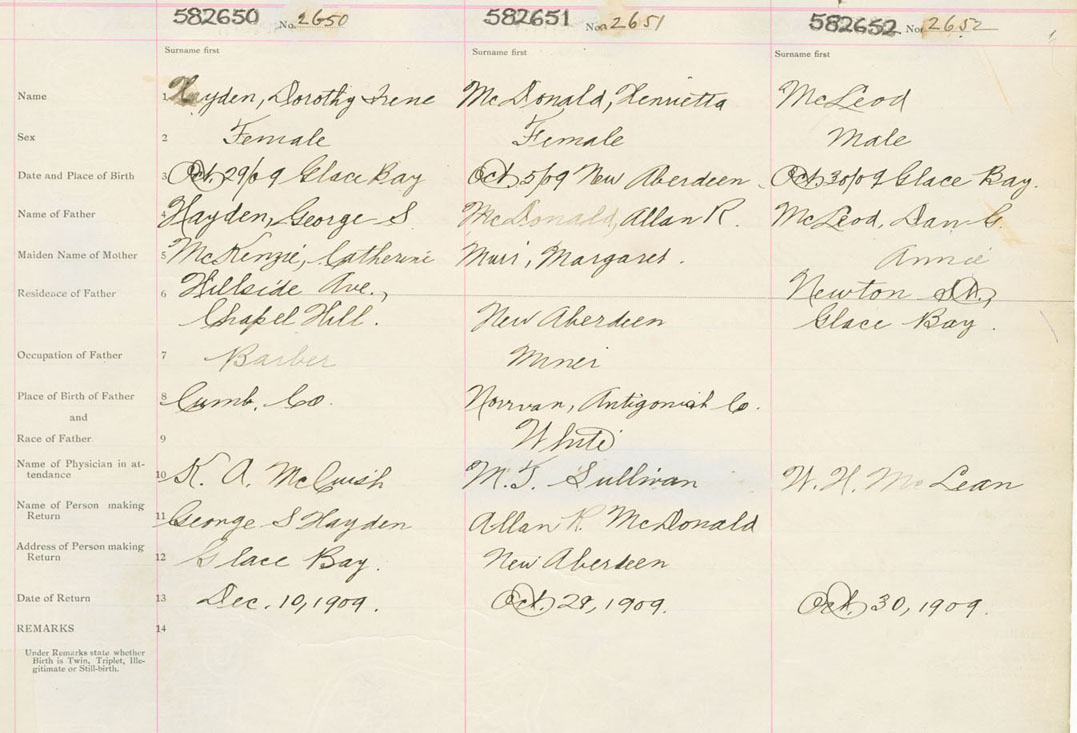 582650 No. 2650 582651 No. 2651 582652 No. 2652
Surname first Surname first Surname first
Name 1 Hayden, Dorothy Irene McDonald, Henrietta McLeod
Sex 2 Female Female Male
Date and Place of Birth 3 Oct. 29/09 Glace Bay Oct. 5/09 New Aberdeen Oct. 30/09 Glace Bay.
Name of Father 4 Hayden, George S. McDonald, Allan R. McLeod, Dan G.
Maiden Name of Mother 5 McKenzie, Catherine Muir, Margaret. Annie
Residence of Father 6 Hillside Ave., Newton St.,
Chapel Hill. New Aberdeen Glace Bay.
Occupation of Father 7 Barber Miner
Place of Birth of Father 8 Cumb. Co. Antigonish Co.
and
Race of Father 9 White
Name of Physician in at-
tendance 10 K. A. McCuish M. T. Sullivan W. H. McLean
Name of Person making
Return 11 George S Hayden Allan R. McDonald
Address of Person making
Return 12 Glace Bay. New Aberdeen
Date of Return 13 Dec. 10, 1909. Oct. 29, 1909. Oct. 30, 1909.
REMARKS 14
Under Remarks state whether
Birth is Twin, Triplet, Ille-
gitimate or Still-birth.